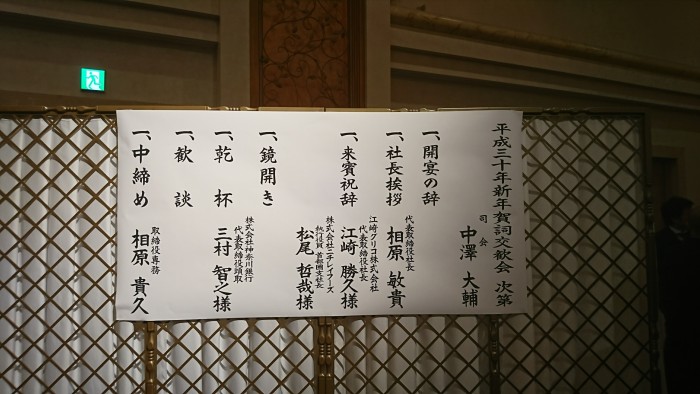 平成三十年新年賀詞交歓会 次第
司会
中澤 大輔
一、開宴の辞
一、社長挨拶
代表取締役社長
相原 敏貴
一、来賓祝辞
江崎グリコ株式会社
代表取締役社長
江崎 勝久様
株式会社ニチレイフーズ
執行役員 首都圏支社長
松尾 哲哉様
一、鏡開き
一、乾杯
株式会社神奈川銀行
代表取締役頭取
三村 智之様
一、歓談
一、中締め
取締役専務
相原 貴久